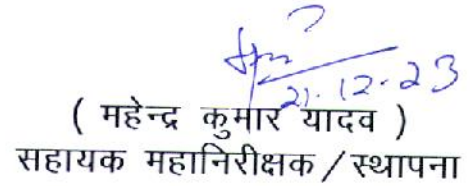 21.12.23
( महेन्द्र कुमार यादव )
सहायक महानिरीक्षक / स्थापना